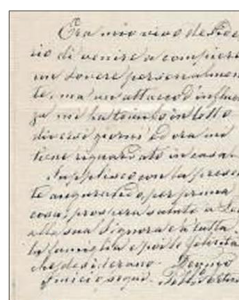 Era mio vivo deside
rio di venire a compiere
un dovere personalmen
te, ma un attacco d'influen
za mi ha tenuto in letto
diversi giorni ed ora mi
tiene riguardato in casa.
Supplisco con la presen
te augurando, per prima
cosa, prospera salute a Lei
alla sua Signora e a tutta
la famiglia e poi le felicità
che desiderano.